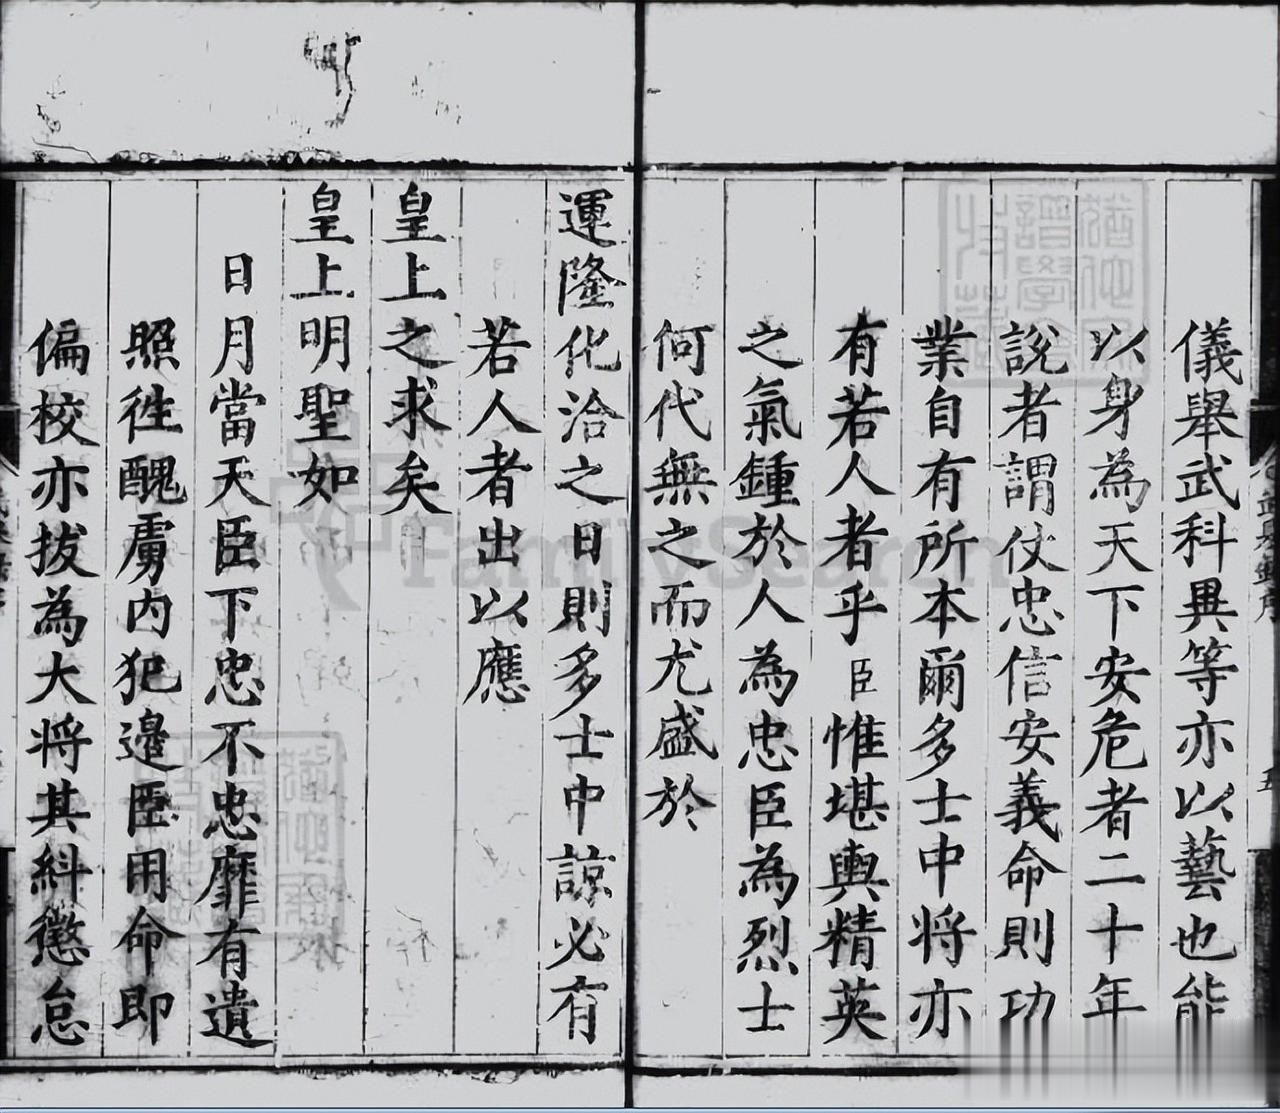 儀舉武科異等亦以藝也能
以身為天下安危者二十年
說者謂仗忠信安義命則功
業自有所本爾多士中將亦
有若人者乎臣惟堪輿精英
之氣鍾於人為忠臣為烈士
何代無之而尤盛於
運隆化洽之日則多士中諒必有
若人者出以應
皇上之求矣
皇上明聖如
日月當天臣下忠不忠靡有遺
照徃醜虜內犯邊臣用命即
偏校亦拔為大将其糾懲怠
FamilySearch